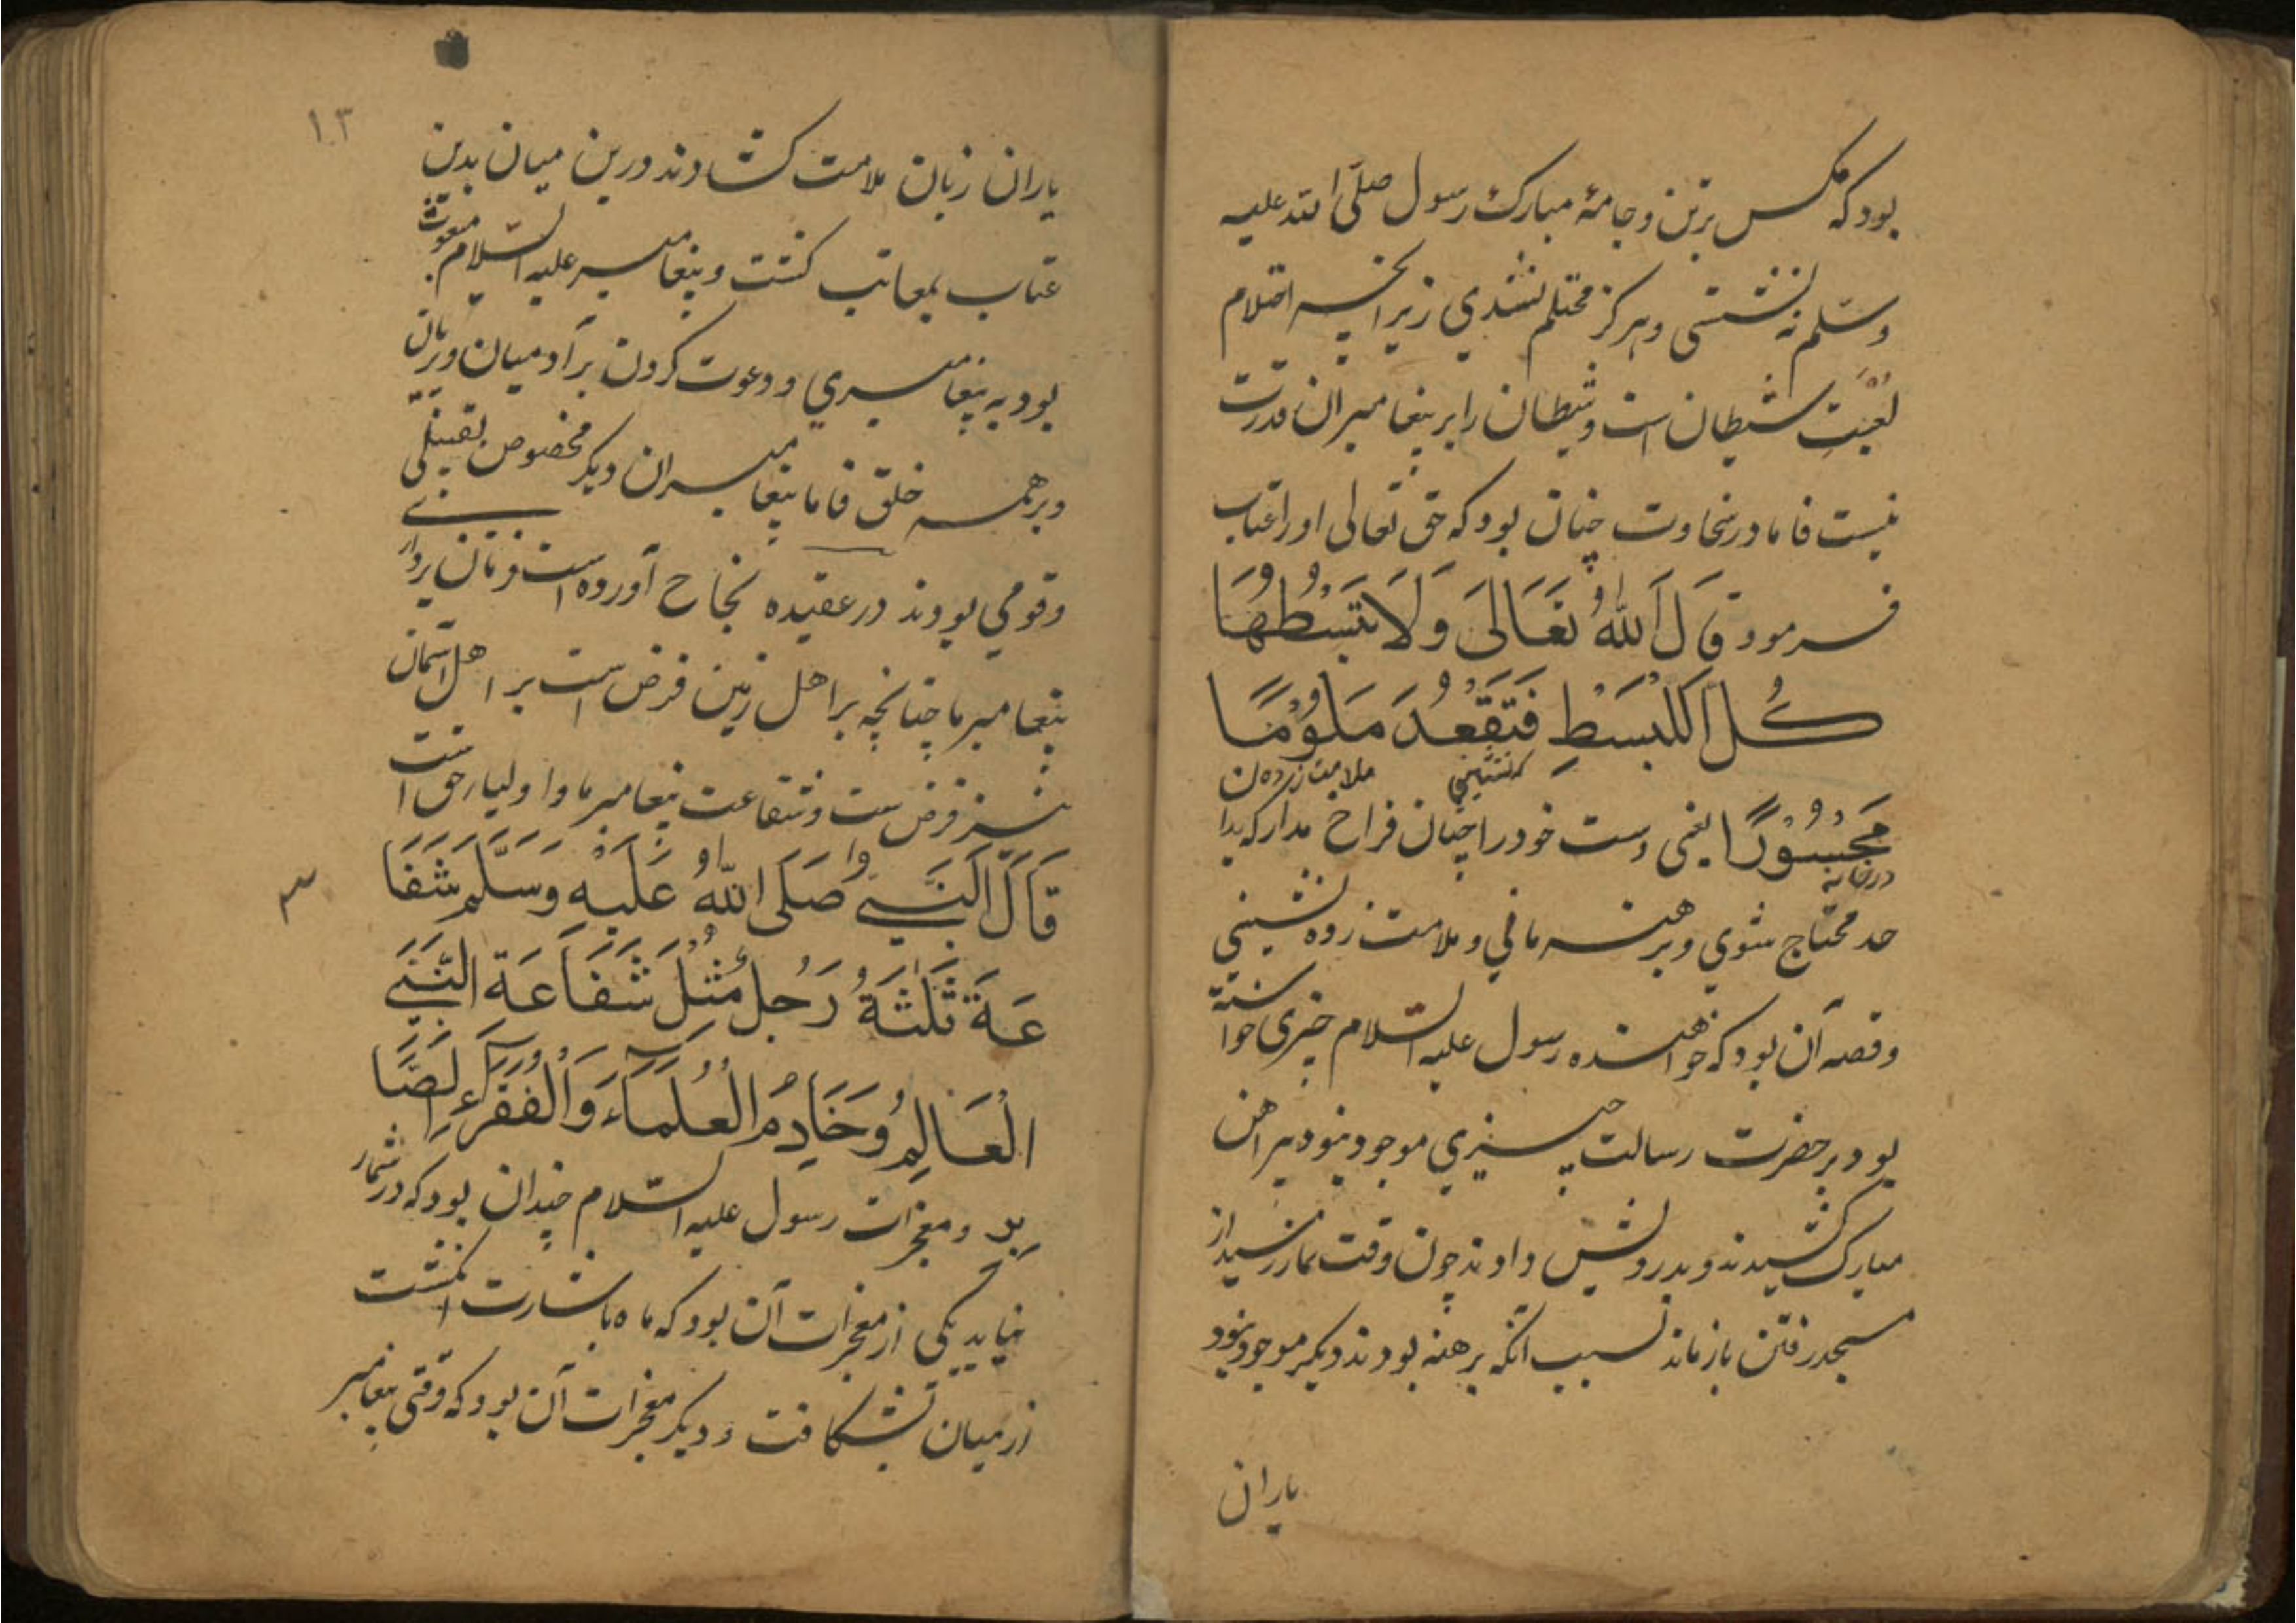 بود که مکس بر تن و جامهٔ مبارک رسول صلّی الله علیه
وسلم نه نشستی و هرکز محتلم نشدي زیرانچه احتلام
لعبت شیطان است و شیطان را بر پیغامبران قدرت
نیست فاما در سخاوت چنان بود که حق تعالی او را عتاب
فرمود قَالَ اللهُ تَعَالَىٰ وَلَا تَبْسُطْهَا
كُلَّ الْبَسْطِ فَتَقْعُدَ مَلُوْمًا
ملامت زده
مَحْسُوْرًا یعنی دست خود را چنان فراخ مدار که بدا
حد محتاج شوي و برهنه مانی و ملامت زده نشینی
وقصه آن بود که خواهنده رسول علیه السّلام چیزی خواسته
بود بر حضرت رسالت چیزي موجود نبود پیراهن
مبارک کشیدند و بدرویش دادند چون وقت نماز رسید از
مسجد رفتن باز ماند بسبب آنکه برهنه بودند و دیکر موجود نبود
یاران
۱۳
یاران زبان ملامت کشادند درین میان بدین
عتاب معاتب کشت و پیغامبر علیه السّلام مبعوث
بود به پیغامبري و دعوت کردن بر آدمیان و پریان
و بر همه خلق فاما پیغامبران دیکر مخصوص بقبیلۀ
وقومي بودند در عقیده نجاح آورده است فرمان بردارئ
پیغامبر ما چنانچه بر اهل زمین فرض است بر اهل آسمان
نیز فرض ست و شفاعت پیغامبر ما و اولیا حق است
قَالَ النَّبِيُّ صَلَّى اللهُ عَلَيْهِ وَسَلَّمَ شَفَا
عَةَ ثَلٰثَةُ رَجُلٍ مِثْلَ شَفَاعَةِ النَّبِيِّ
الْعَالِمُ وَخَادِمُ الْعُلَمَاءِ وَالْفُقَرَاءِ الصَّا
بر و معجزات رسول علیه السّلام چندان بود که در شمار
نیاید یکی از معجزات آن بود که ماه باشارت انکشت
از میان بشکافت و دیکر معجزات آن بود که وقتی پیغامبر